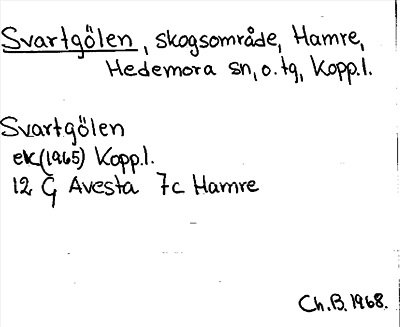 Svartgölen, skogsområde, Hamre,
Hedemora sn, o. tg, Kopp.l.
Svartgölen
ek(1965) Kopp.l.
12 G Avesta 7c Hamre
Ch.B. 1968.